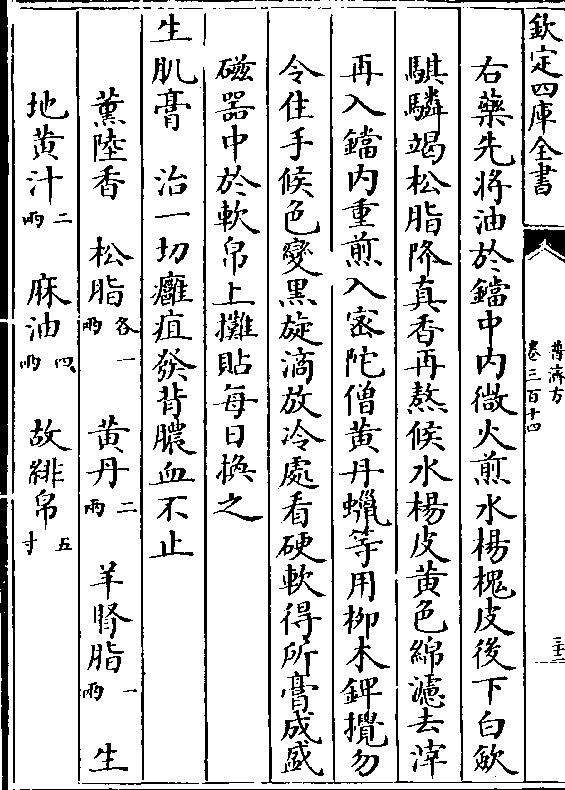 欽定四庫全書
普濟方
卷三百十四
三十二
右藥先將油於鐺中内微火煎水楊槐皮後下白歛
騏驎竭松脂降真香再熬候水楊皮黄色綿濾去滓
再入鐺内重煎入宻陀僧黄丹蠟等用柳木錍攪勿
令住手候色變黒旋滴放冷處看硬軟得所膏成盛
磁器中於軟帛上攤貼每日換之
生肌膏　治一切癰疽發背膿血不止
薫陸香　松脂各一兩　黄丹二兩　羊腎脂一兩　生
地黄汁二兩　麻油四兩　故緋帛五寸